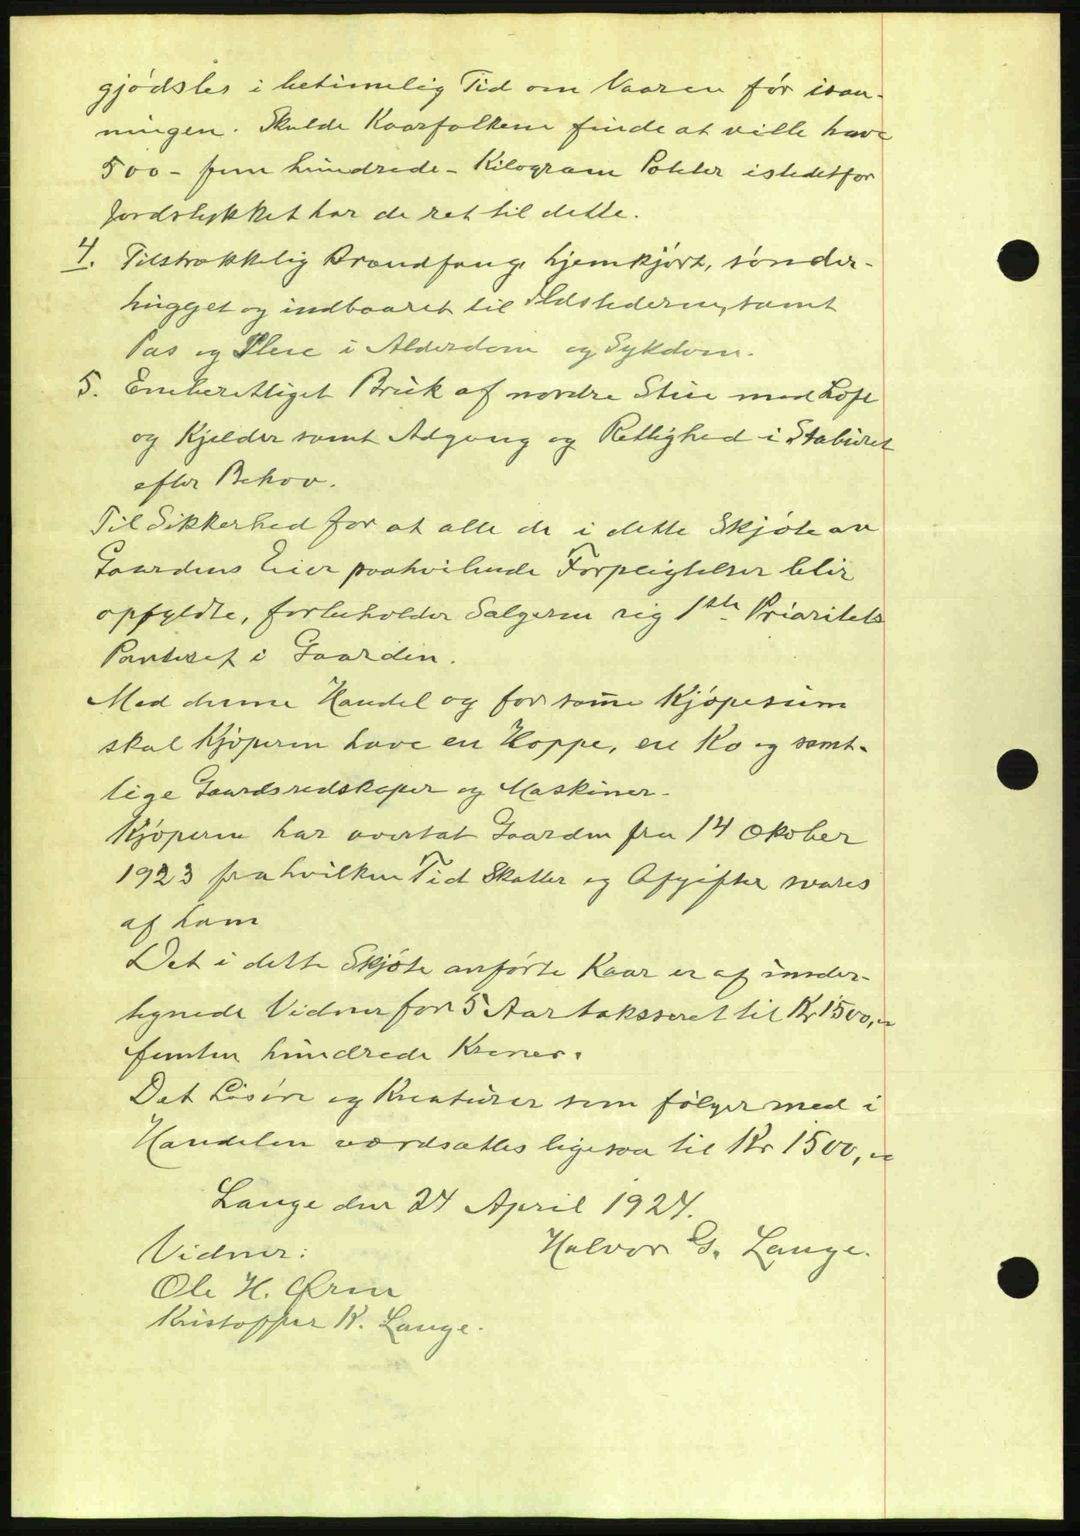 gjødsles i betimelig Tid om Vaaren før ivaan-
ningen. Skulde Kaarfolkene finde at ville have
500 - fem hundrede - Kilogram Poteter istedetfor
Jordstykket har de ret til dette.
4. Tilstrækkelig Brændfang hjemkjørt, sønder-
hugget og indbaaret til Ildstederne, samt
Pas og Pleie i Alderdom og Sykdom.
5. Eneberettiget Bruk af nordre Stue med Loft
og Kjelder samt Adgang og Rettighed i Staburet
efter Behov.
Til Sikkerhed for at alle de i dette Skjøte av
Gaardens Eier paahvilende Forpligtelser blir
opfyldte, forbeholder Sælgeren sig 1ste Prioritets
Panteret i Gaarden.
Med denne Handel og for samme Kjøpesum
skal Kjøperen have en Hoppe, en Ko og samt-
lige Gaardsredskaper og Maskiner.
Kjøperen har overtat Gaarden fra 14 Okober
1923 fra hvilken Tid Skatter og Afgifter svares
af ham
Det i dette Skjøte anførte Kaar er af under-
tegnede Vidner for 5 Aar taksseret til Kr 1500,-
femten hundrede Kroner.
Det Løsøre og Kreaturer som følger med i
Handelen værdsættes ligesaa til Kr 1500,-
Lange den 24 April 1924.
Vidner: Halvor G. Lange.
Ole H. Øren
Kristoffer K. Lange.